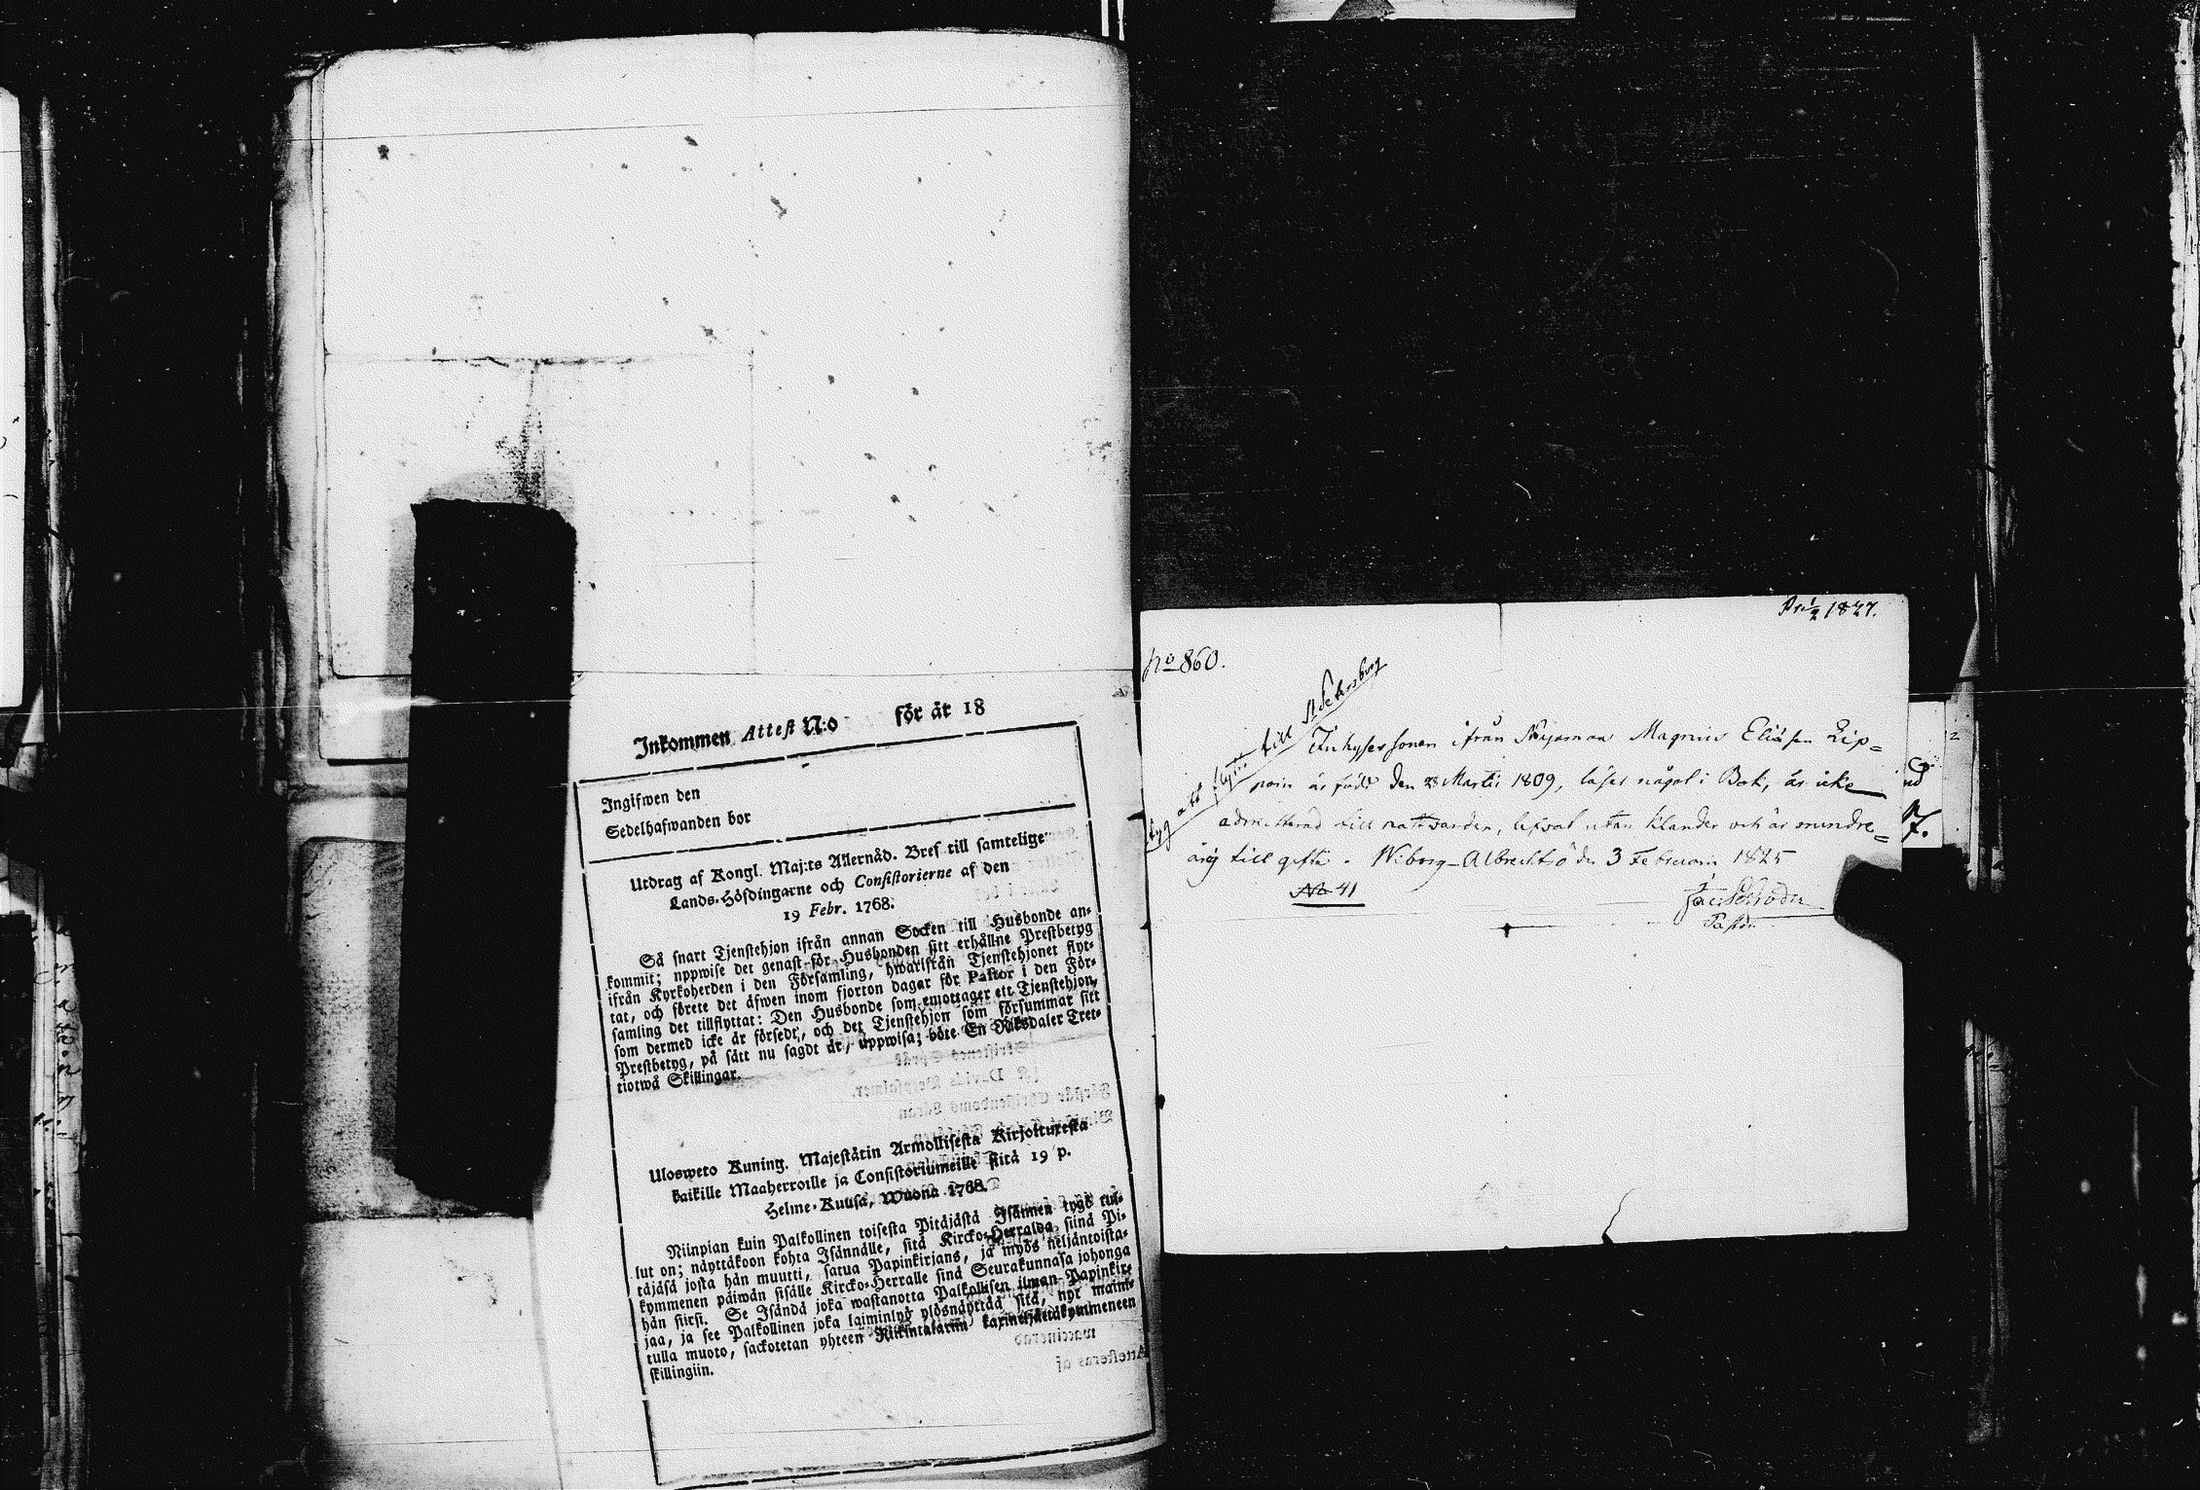 Inkommen Attest N:o för år 18
Ingifwen den
Sedelhafwanden bor
Utdrag af Kongl. Maj:ts Allernåd. Bref till samtelige
Lands-Höfdingarne och Consistorierne af den
19 Febr. 1768.
Så snart Tjenstehjon ifrån annan Socken till Husbonde an-
kommit; uppwise det genast för Husbonden sitt erhållne Prestbetyg
ifrån Kyrkoherden i den Församling, hwarifrån Tjenstehjonet flyt-
tat, och förete det äfwen inom fjorton dagar för Pastor i den För-
samling det tillflyttat: Den Husbonde som emottager ett Tjenstehjon,
som dermed icke är försedt, och det Tjenstehjon som försummar sitt
Prestbetyg, på sätt nu sagdt är, uppwisa; böte En Riksdaler Tret-
tiotwå Skillingar.
Ulosweto Kuning. Majestätin Armollisesta Kirjoituxesta
kaikille Maaherroille ja Consistoriumeille siitä 19 p.
Helme-Kuusa, Wuona 1768.
Niinpian kuin Palkollinen toisesta Pitäjästä Isännen tygö tul-
lut on; näyttäkoon kohta Isännälle, sitä Kircko-Herralda, siinä Pi-
täjäsä josta hän muutti, saatua Papinkirjans, ja myös neljäntoista-
kymmenen päiwän sisälle Kircko-Herralle siinä Seurakunnasa johonga
hän siirsi. Se Isändä joka wastanotta Palkollisen ilman Papinkir-
jaa, ja see Palkollinen joka laiminlyö ylösnäyttää sitä, nyt maini-
tulla muoto, sackotetan yhteen Riikintalariin
skillingiin.
1827.
No 860.
till St Petersburg
ifrån Magnus Eliasson Lip-
poin är född den 28 Martii 1809, läser något i Bok, är icke
admitterad till nattvarden, lefvat utan klander och är mindre-
årig till gifte. Wiborg den 3 Februarii 1825
No 41
Pastor